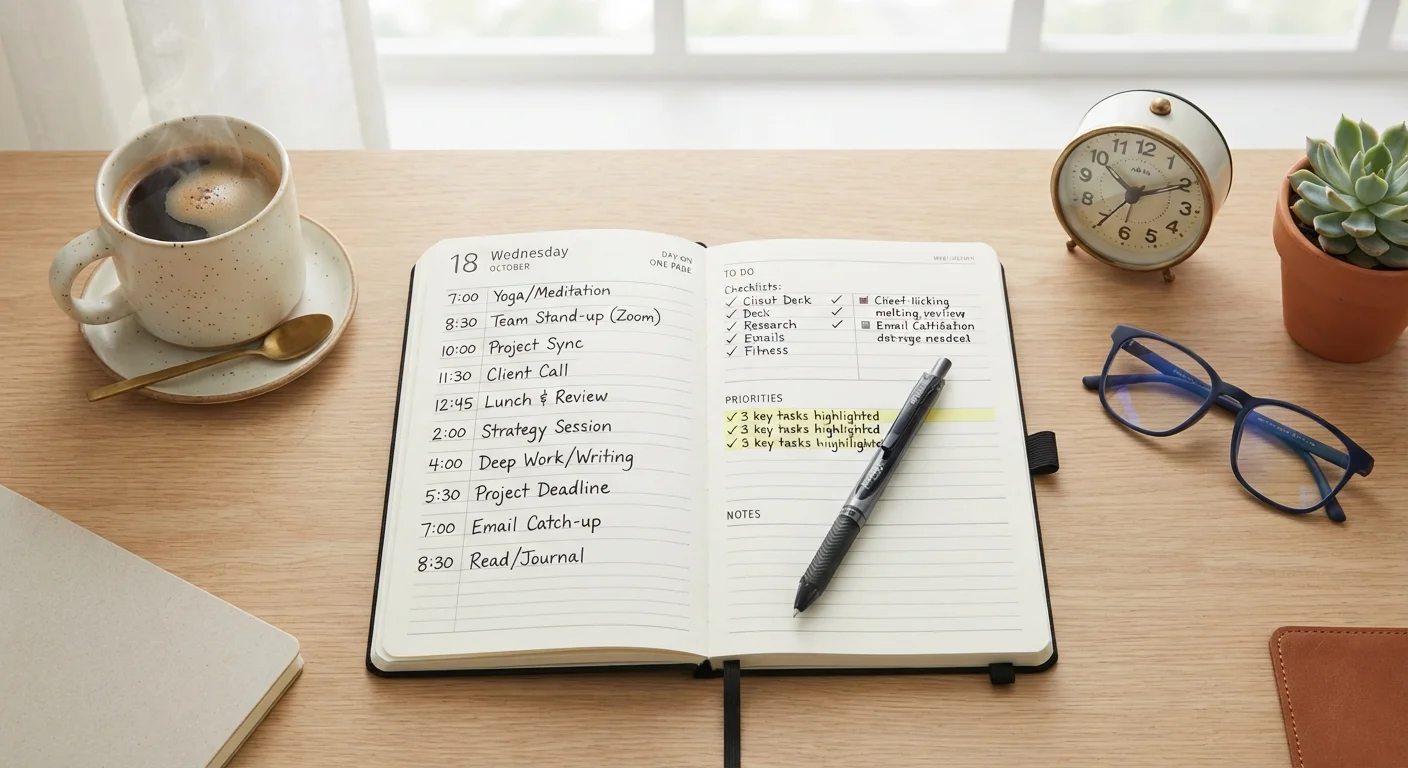 18 Wednesday
OCTOBER
DAY ON
ONE PAGE
7:00 Yoga/Meditation
8:30 Team Stand-up (Zoom)
10:00 Project Sync
11:30 Client Call
12:45 Lunch & Review
2:00 Strategy Session
4:00 Deep Work/Writing
5:30 Project Deadline
7:00 Email Catch-up
8:30 Read/Journal
TO DO
Checklists:
✓ Deck ✓
✓ Research ✓
✓ Emails
✓ Fitness
Email
PRIORITIES
✓ 3 key tasks highlighted
✓ 3 key tasks highlighted
✓ 3 key tasks
NOTES
10 11 12
9 2
8 3
7 6 5 4